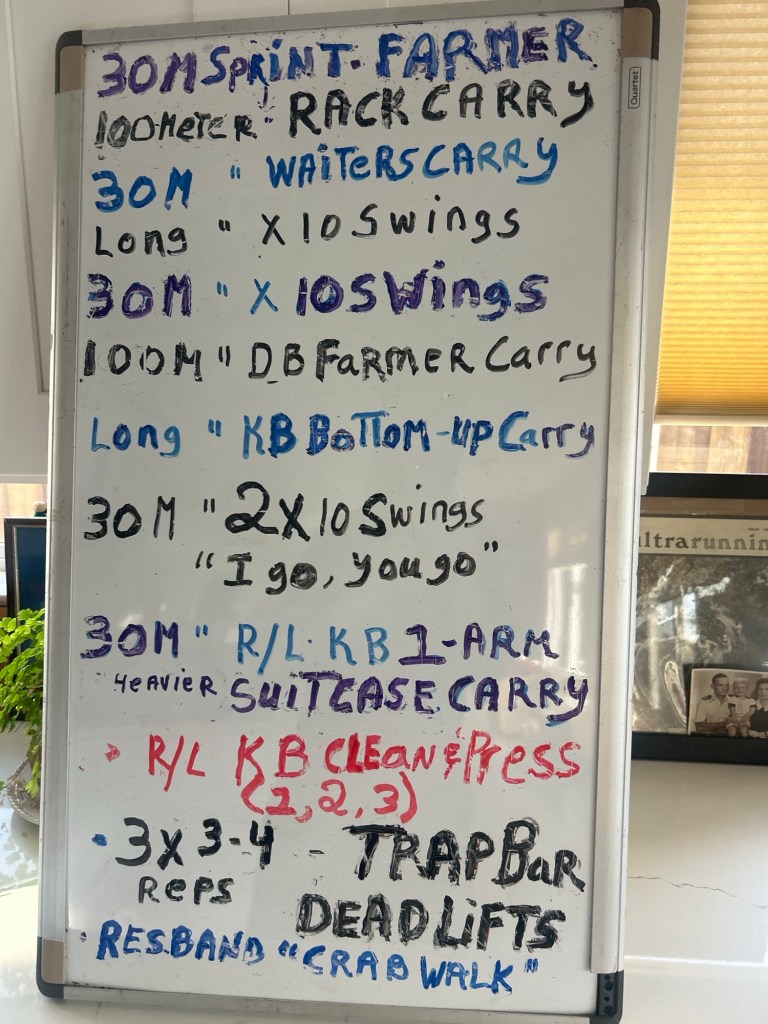 30M SPRINT- FARMER
100METER " RACK CARRY
30M " WAITERS CARRY
Long " X 10 Swings
30M " X 10 SWings
100M " DB FARMER Carry
Long " KB BOTTOM-UP Carry
30M " 2X10 Swings
"I go, you go"
30M " R/L KB 1-ARM
HEAVIER SUITCASE CARRY
• R/L KB CLEAN & PRess
(1, 2, 3)
• 3X3-4 - TRAP BaR
REPS DEADLIFTS
• RESBAND "CRAB WALK"
Quartet
ultrarunnin